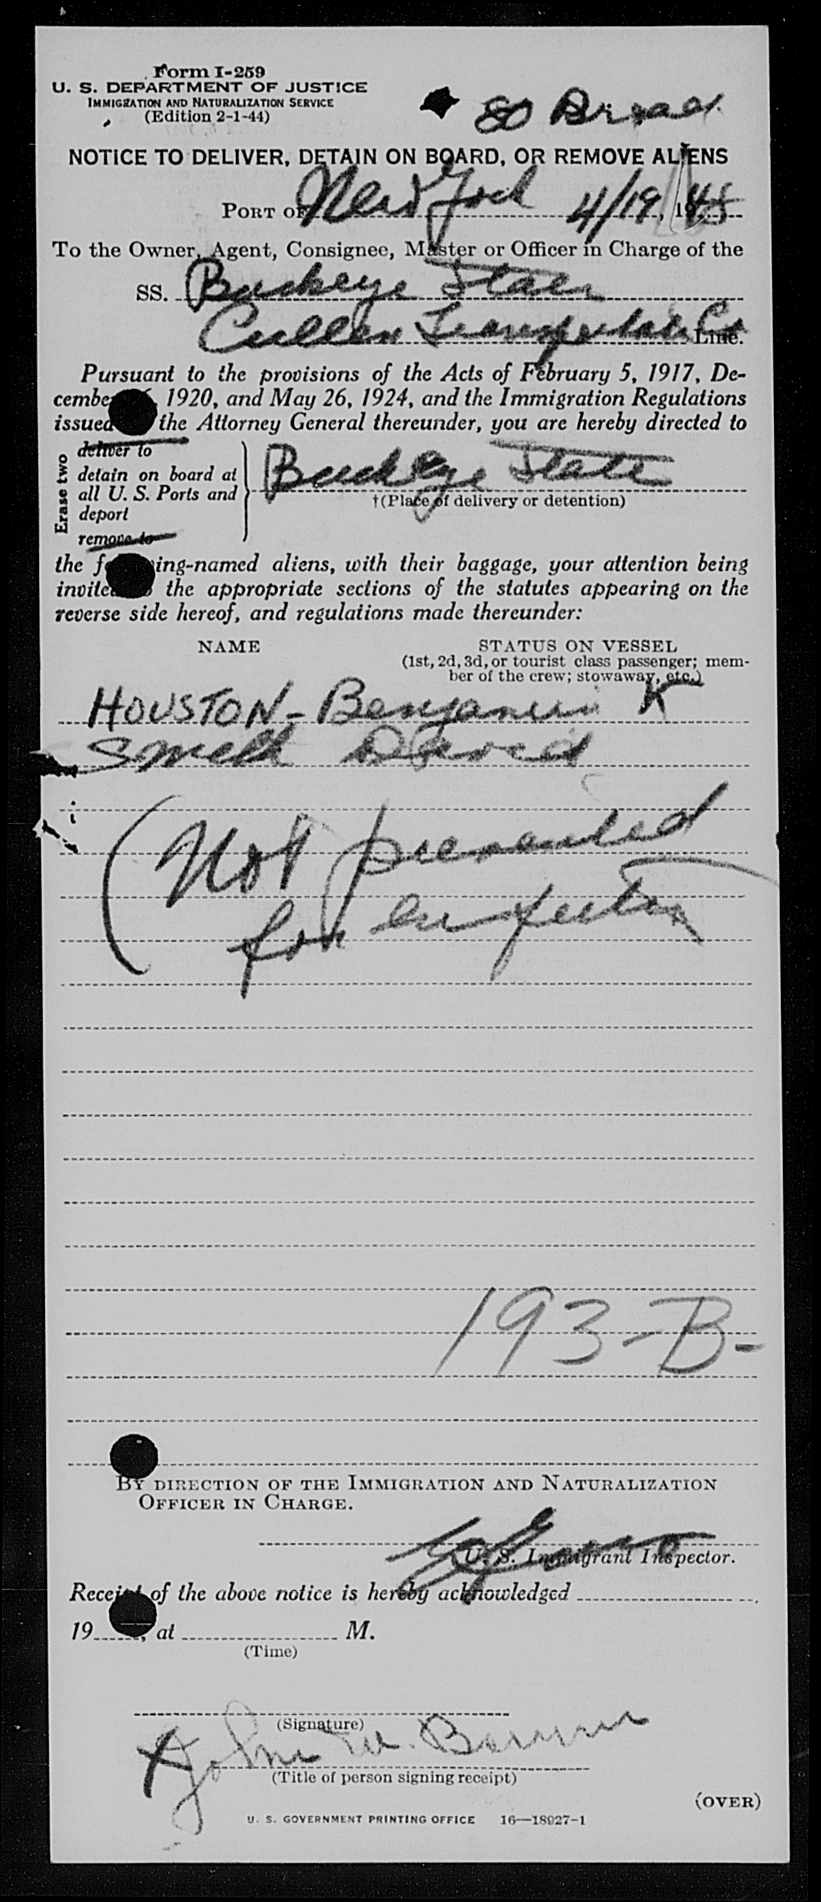 Form I-259
U. S. DEPARTMENT OF JUSTICE
IMMIGRATION AND NATURALIZATION SERVICE
(Edition 2-1-44)
80 Broad
NOTICE TO DELIVER, DETAIN ON BOARD, OR REMOVE ALIENS
PORT OF New York 4/19, 1945
To the Owner, Agent, Consignee, Master or Officer in Charge of the
SS. Buckeye State
Cullen Transportation Co Line.
Pursuant to the provisions of the Acts of February 5, 1917, De-
cember 1920, and May 26, 1924, and the Immigration Regulations
issued the Attorney General thereunder, you are hereby directed to
Erase two
deliver to
detain on board at
all U. S. Ports and
deport
remove to
Buckeye State
†(Place of delivery or detention)
the following-named aliens, with their baggage, your attention being
invited the appropriate sections of the statutes appearing on the
reverse side hereof, and regulations made thereunder:
NAME STATUS ON VESSEL
(1st, 2d, 3d, or tourist class passenger; mem-
ber of the crew; stowaway, etc.)
HOUSTON - Benjamin K
David
(Not presented
for inspection
193-B-
BY DIRECTION OF THE IMMIGRATION AND NATURALIZATION
OFFICER IN CHARGE.
U. S. Immigrant Inspector.
Receipt of the above notice is hereby acknowledged
19 , at M.
(Time)
(Signature)
X John W.
(Title of person signing receipt)
(OVER)
U. S. GOVERNMENT PRINTING OFFICE 16—18927-1